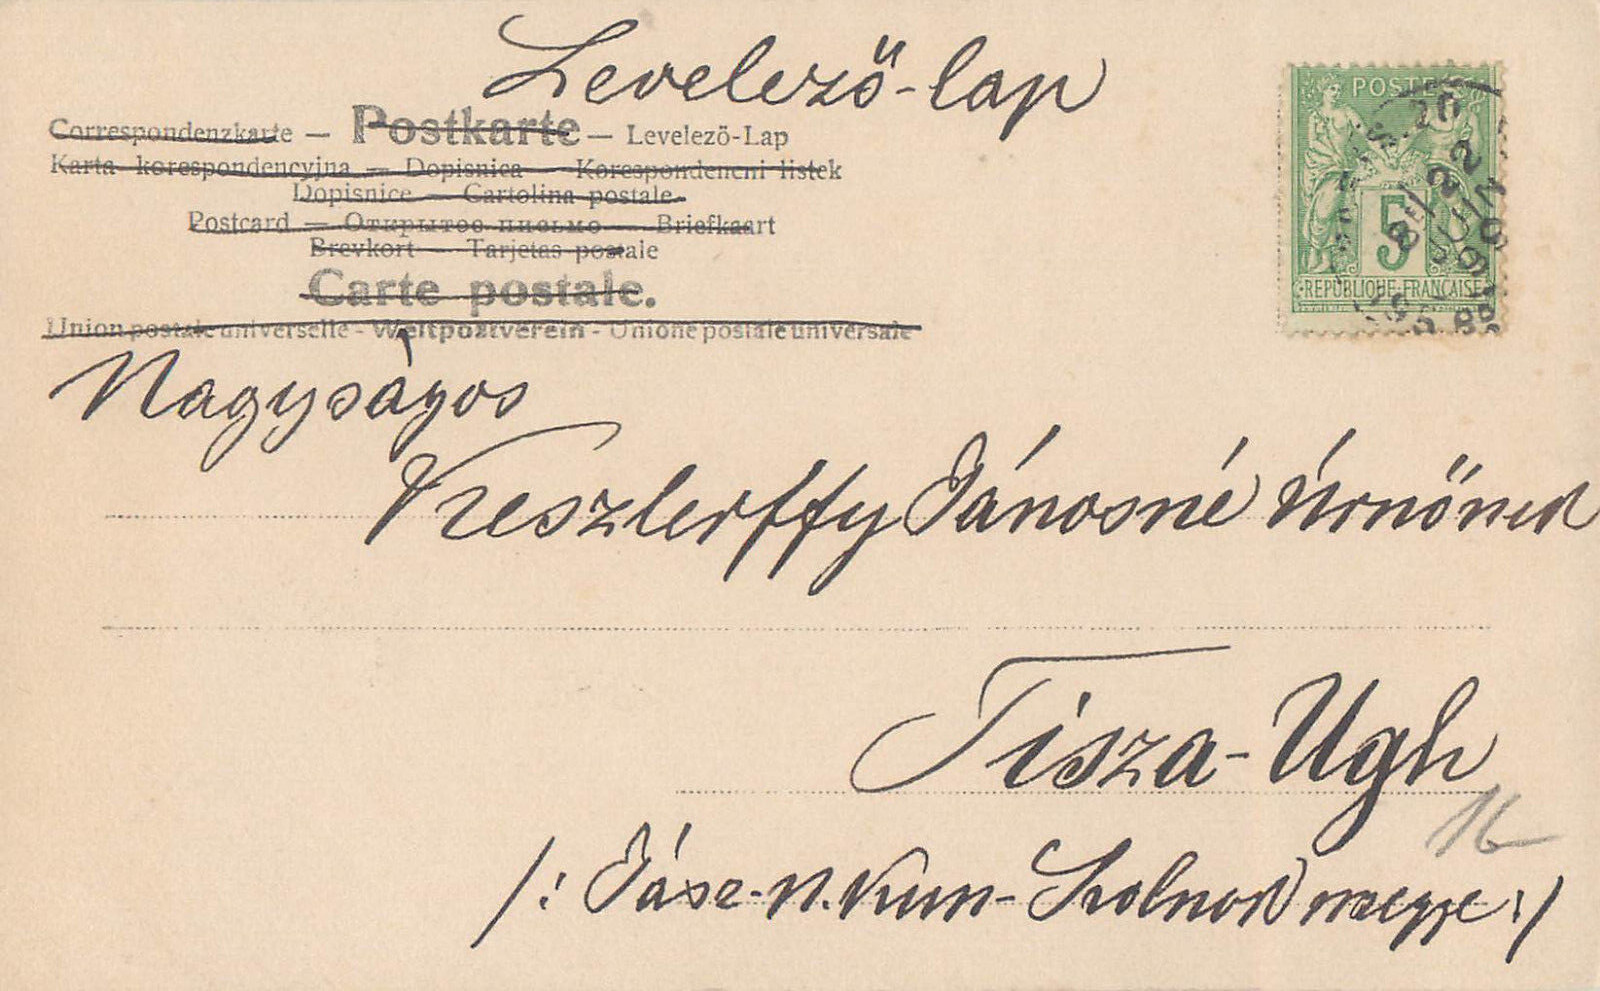 Levelező-lap
Correspondenzkarte — Postkarte — Levelezö-Lap
Karta korespondencyjna — Dopisnica — Korespondencni listek
Dopisnice — Cartolina postale.
Postcard — Открытое письмо — Briefkaart
Brevkort — Tarjetas postale
Carte postale.
Union postale universelle - Weltpostverein - Unione postale universale
POSTES
5
REPUBLIQUE FRANÇAISE
Nagyságos
Keszlerffy Jánosné Úrnőnek
Tisza-Ugh
16
/: Jász-N. Kun-Szolnok megye :/